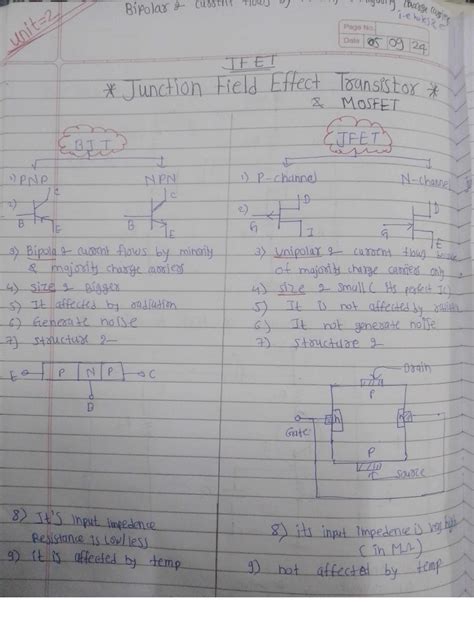 unit=2
Bipolar & current flows by
i.e holes & e⁻
Page No.
Date 05 09 24
JFET
* Junction Field Effect Transistor *
& MOSFET
BJT
JFET
1) PNP NPN
1) P-channel N-channel
2) C B E C B E
2) D G I D G E
3) Bipola & current flows by minority
& majority charge carriers
3) unipolar & current flows because
of majority charge carriers only
4) size & Bigger
4) size & small (Its prefect IC)
5) It affected by radiation
5) It Is not affected by
6) Generate noise
6) It not generate noise
7) structure &-
7) structure &
E P N P C
B
Drain
P
Gate n n
P
source
8) It's input impedence
Resistance is low/less
8) its input impedence is very high
(in MΩ)
9) It is affected by temp
9) not affected by temp